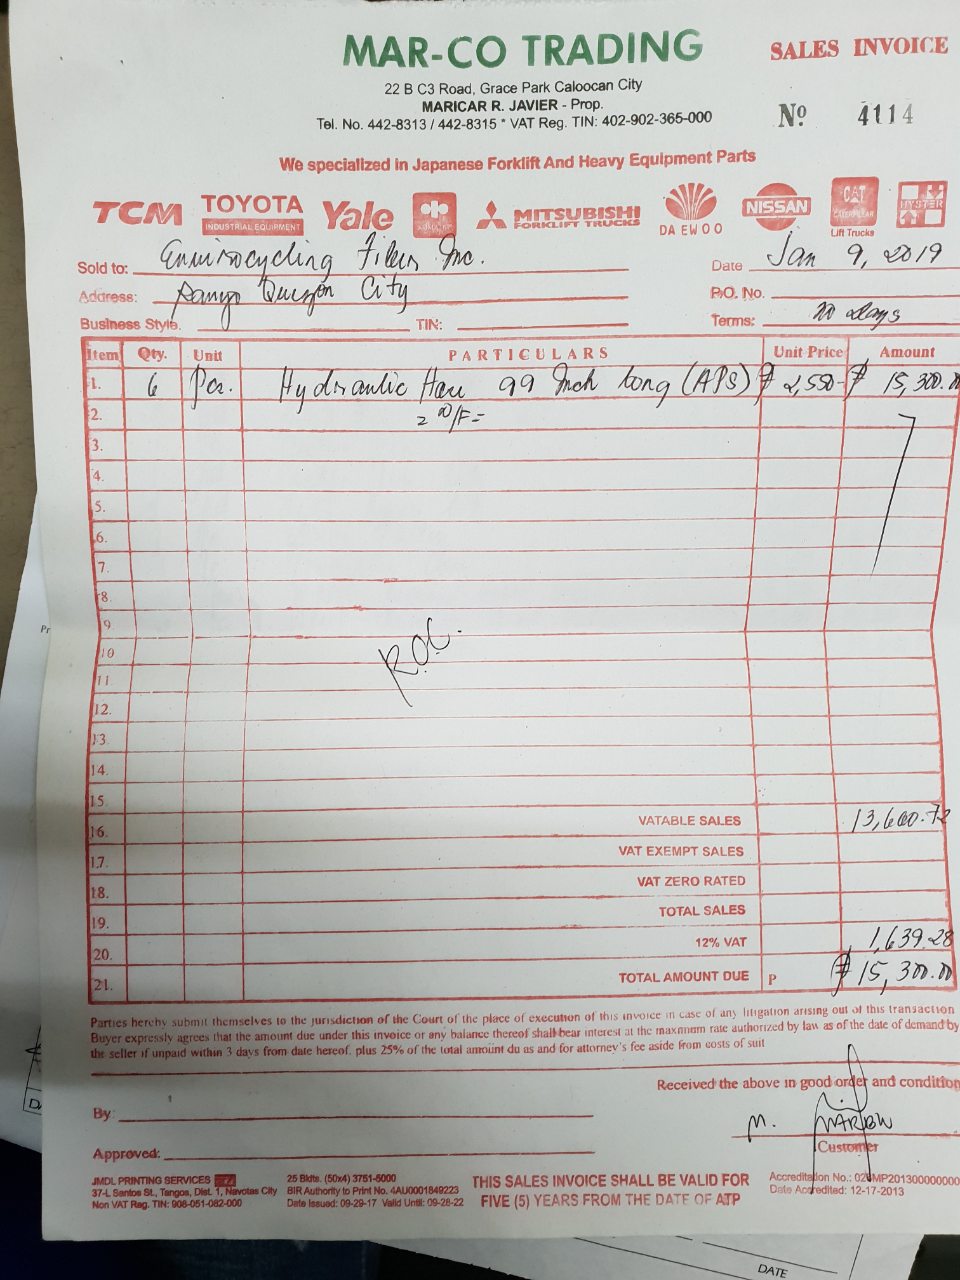 MAR-CO TRADING
SALES INVOICE
22 B C3 Road, Grace Park Caloocan City
MARICAR R. JAVIER - Prop.
Tel. No. 442-8313 / 442-8315 * VAT Reg. TIN: 402-902-365-000
Nº 4114
We specialized in Japanese Forklift And Heavy Equipment Parts
TCM TOYOTA INDUSTRIAL EQUIPMENT Yale MITSUBISHI FORKLIFT TRUCKS DAEWOO NISSAN CAT CATERPILLAR Lift Trucks HYSTER
Sold to: Envirocycling Fiber Inc. Date Jan 9, 2019
Address: Quezon City P.O. No.
Business Style. TIN: Terms: days
Item Qty. Unit PARTICULARS Unit Price Amount
1. 6 Pcs. Hydraulic Hose 99 Inch Long (APS) ₱ 2,550- ₱ 15,300.00
2.
3.
4.
5.
6.
7.
8.
9.
10
11.
12.
13.
14.
15.
R.O.C.
16. VATABLE SALES 13,660.72
17. VAT EXEMPT SALES
18. VAT ZERO RATED
19. TOTAL SALES
20. 12% VAT 1,639.28
21. TOTAL AMOUNT DUE P ₱ 15,300.00
Parties hereby submit themselves to the jurisdiction of the Court of the place of execution of this invoice in case of any litigation arising out of this transaction
Buyer expressly agrees that the amount due under this invoice or any balance thereof shall bear interest at the maximum rate authorized by law as of the date of demand by
the seller if unpaid within 3 days from date hereof. plus 25% of the total amount du as and for attorney's fee aside from costs of suit
Received the above in good order and condition
By:
M.
Customer
Approved:
JMDL PRINTING SERVICES
37-L Santos St., Tangos, Dist. 1, Navotas City
Non VAT Reg. TIN: 908-051-082-000
25 Bklts. (50x4) 3751-5000
BIR Authority to Print No. 4AU0001849223
Date Issued: 09-29-17 Valid Until: 09-28-22
THIS SALES INVOICE SHALL BE VALID FOR
FIVE (5) YEARS FROM THE DATE OF ATP
Accreditation No.:
Date Accredited: 12-17-2013
DATE